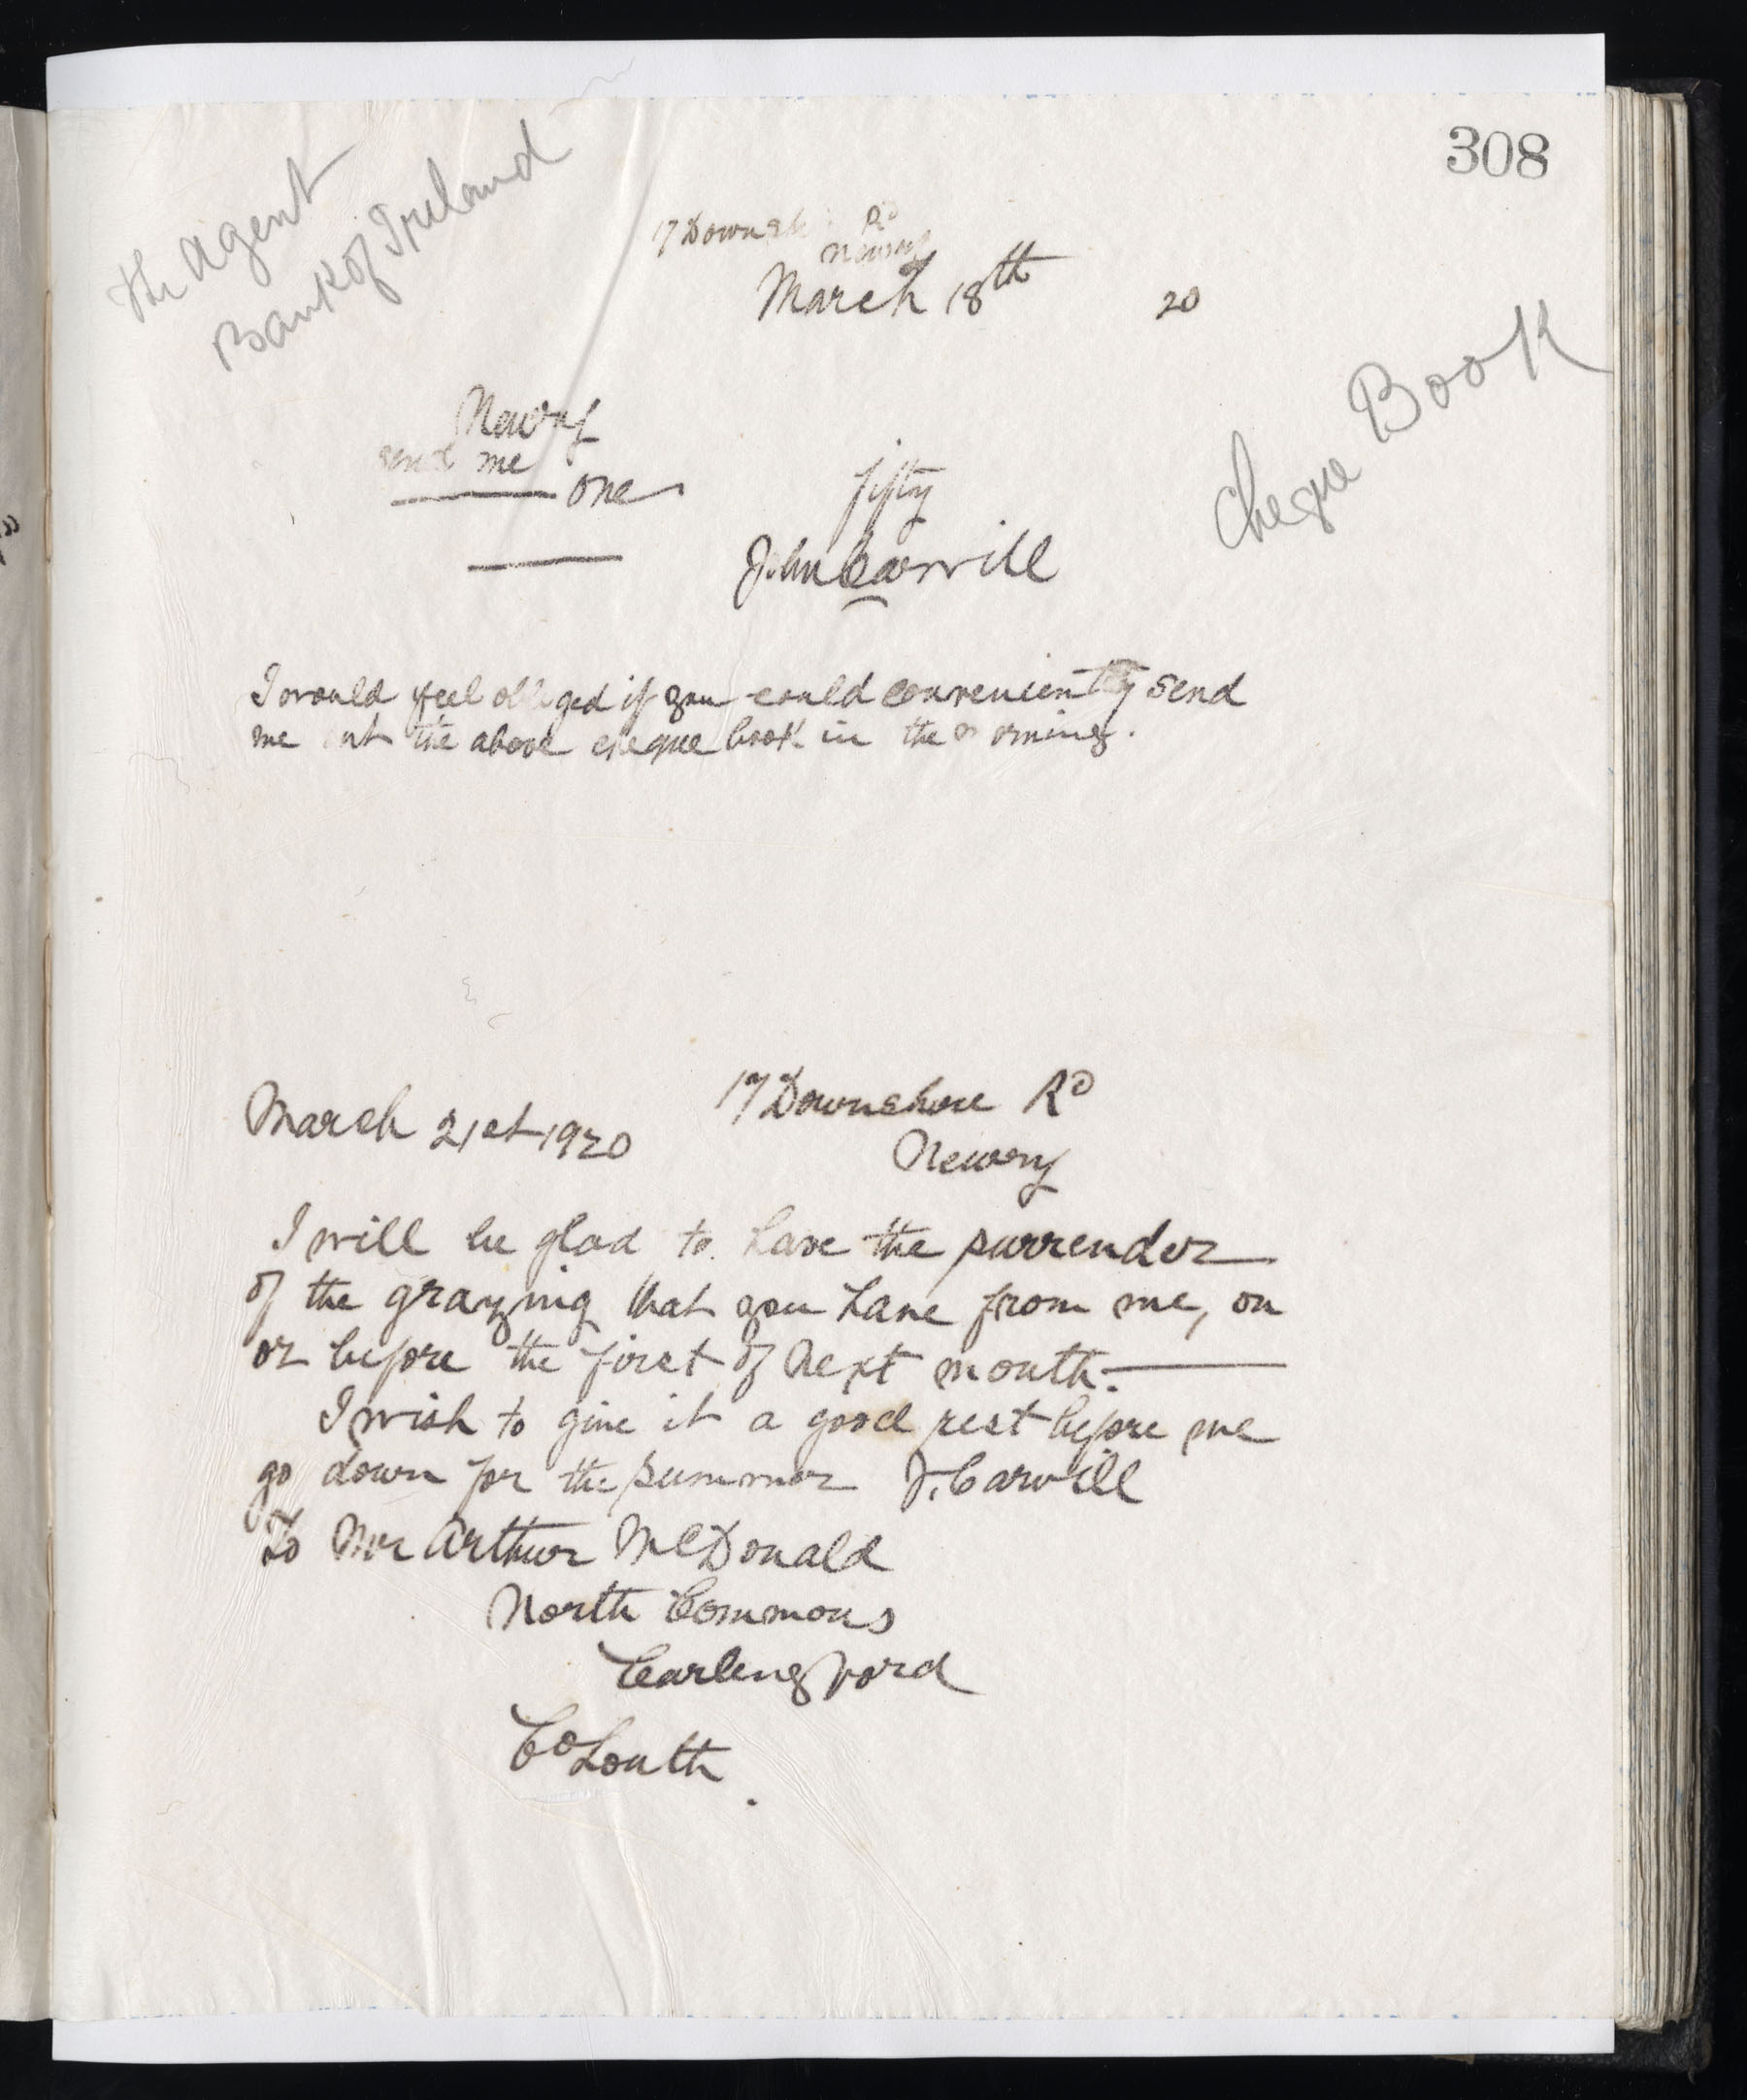 308
The Agent
Bank of Ireland
17 Downsh Rd
Newry
March 18th 20
Cheque Book
Newry
send me
one fifty
John Carvill
I would feel obliged if you could conveniently send
me out the above cheque book in the morning.
March 21st 1920 17 Downshire Rd
Newry
I will be glad to have the surrender
of the grazing that you have from me, on
or before the first of next month.
I wish to give it a good rest before we
go down for the summer J. Carvill
To Mr Arthur McDonald
North Commons
Carlingford
Co Louth.